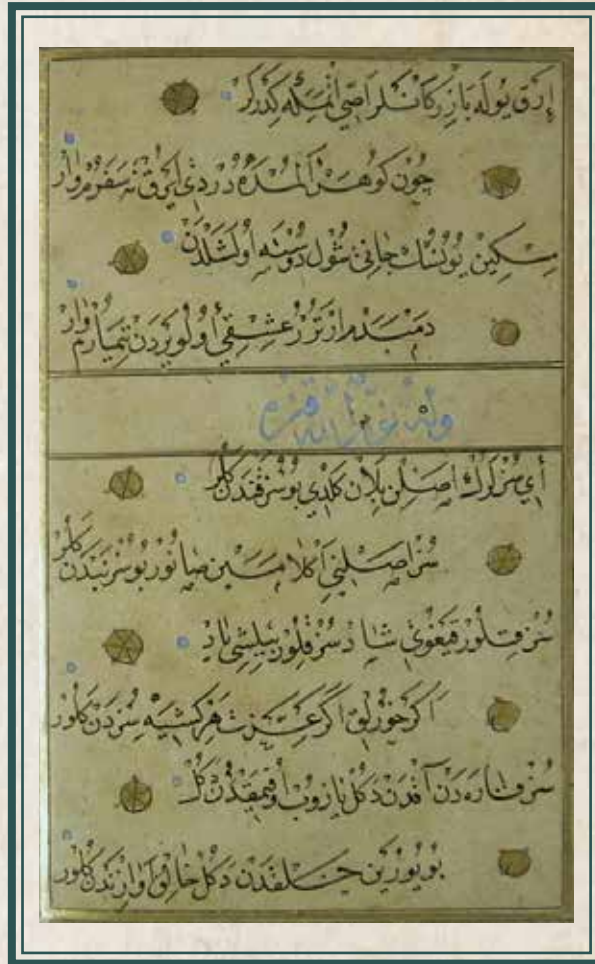 إرق يوله بازركانلر اصي اتمكه كدرلر
چون كوهر المده دردي ايرق نه سفرم وار
مسكين يونسك جاني شول دوسته اولشلدن
دمبدم ارترر عشقي اولو يردن تيمارم وار
وله غفر الله
أي سزلرك اصلن بلان كلدي بوسز قندن كلر
سز اصلني اكلامين صانور بوسز بندن كلر
سز قلور قيغوي شاد سز قلور بيلشي ياد
اكر خورلق اكر عزت هر كشيه سزدن كلور
سز قاره دن آقدن دكل يازوب اوقيمقدن دكل
بو يورين خلقدن دكل خالق آوازندن كلور